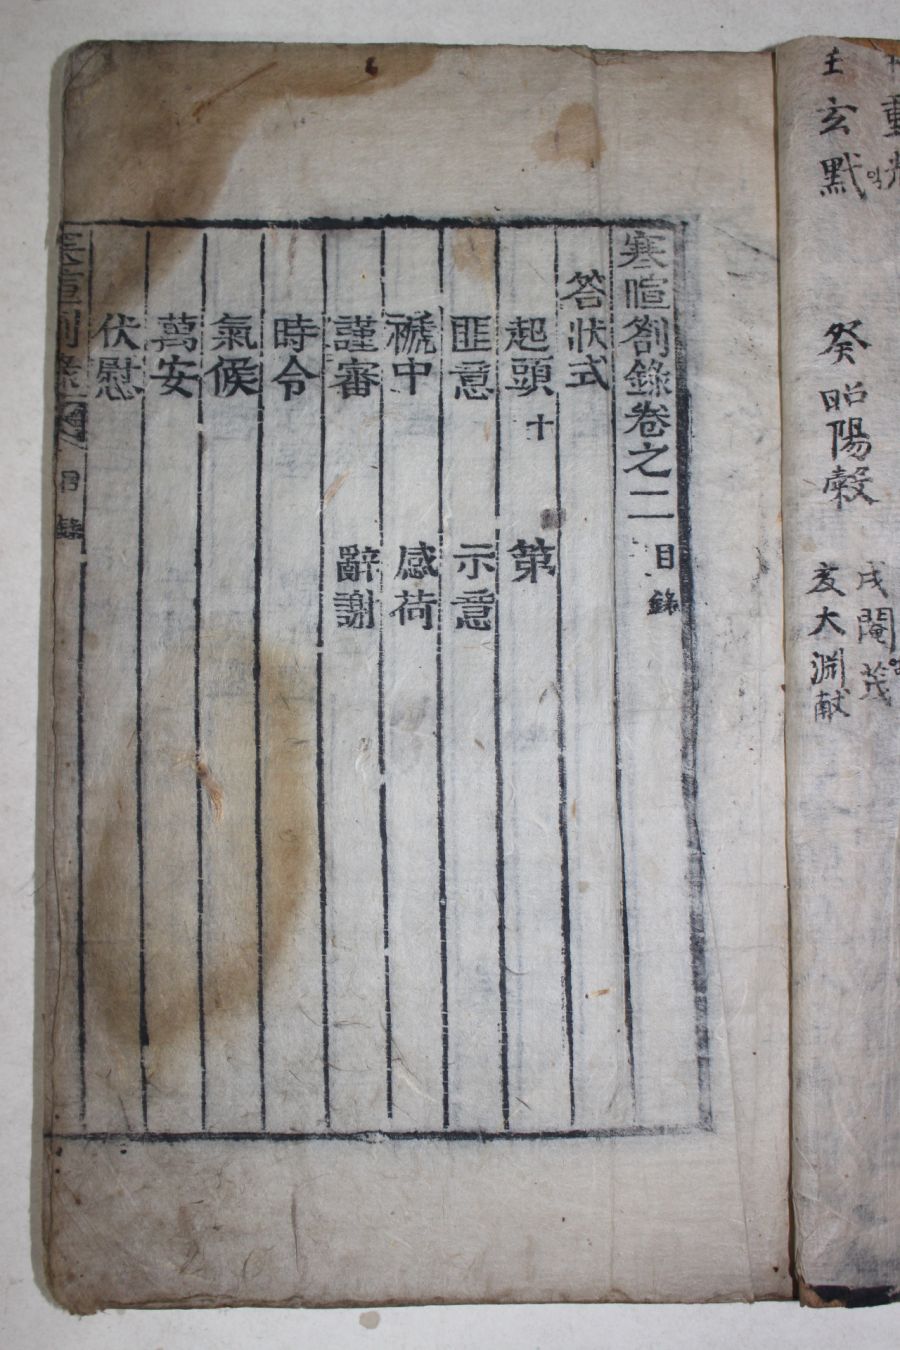 重光
壬
玄默
癸昭陽
戌閹茂
亥大淵献
寒暄劄錄卷之二 目錄
答狀式
起頭十 第
匪意 示意
褫中 感荷
謹審 辭謝
時令
氣候
萬安
伏慰
寒暄劄錄 目錄